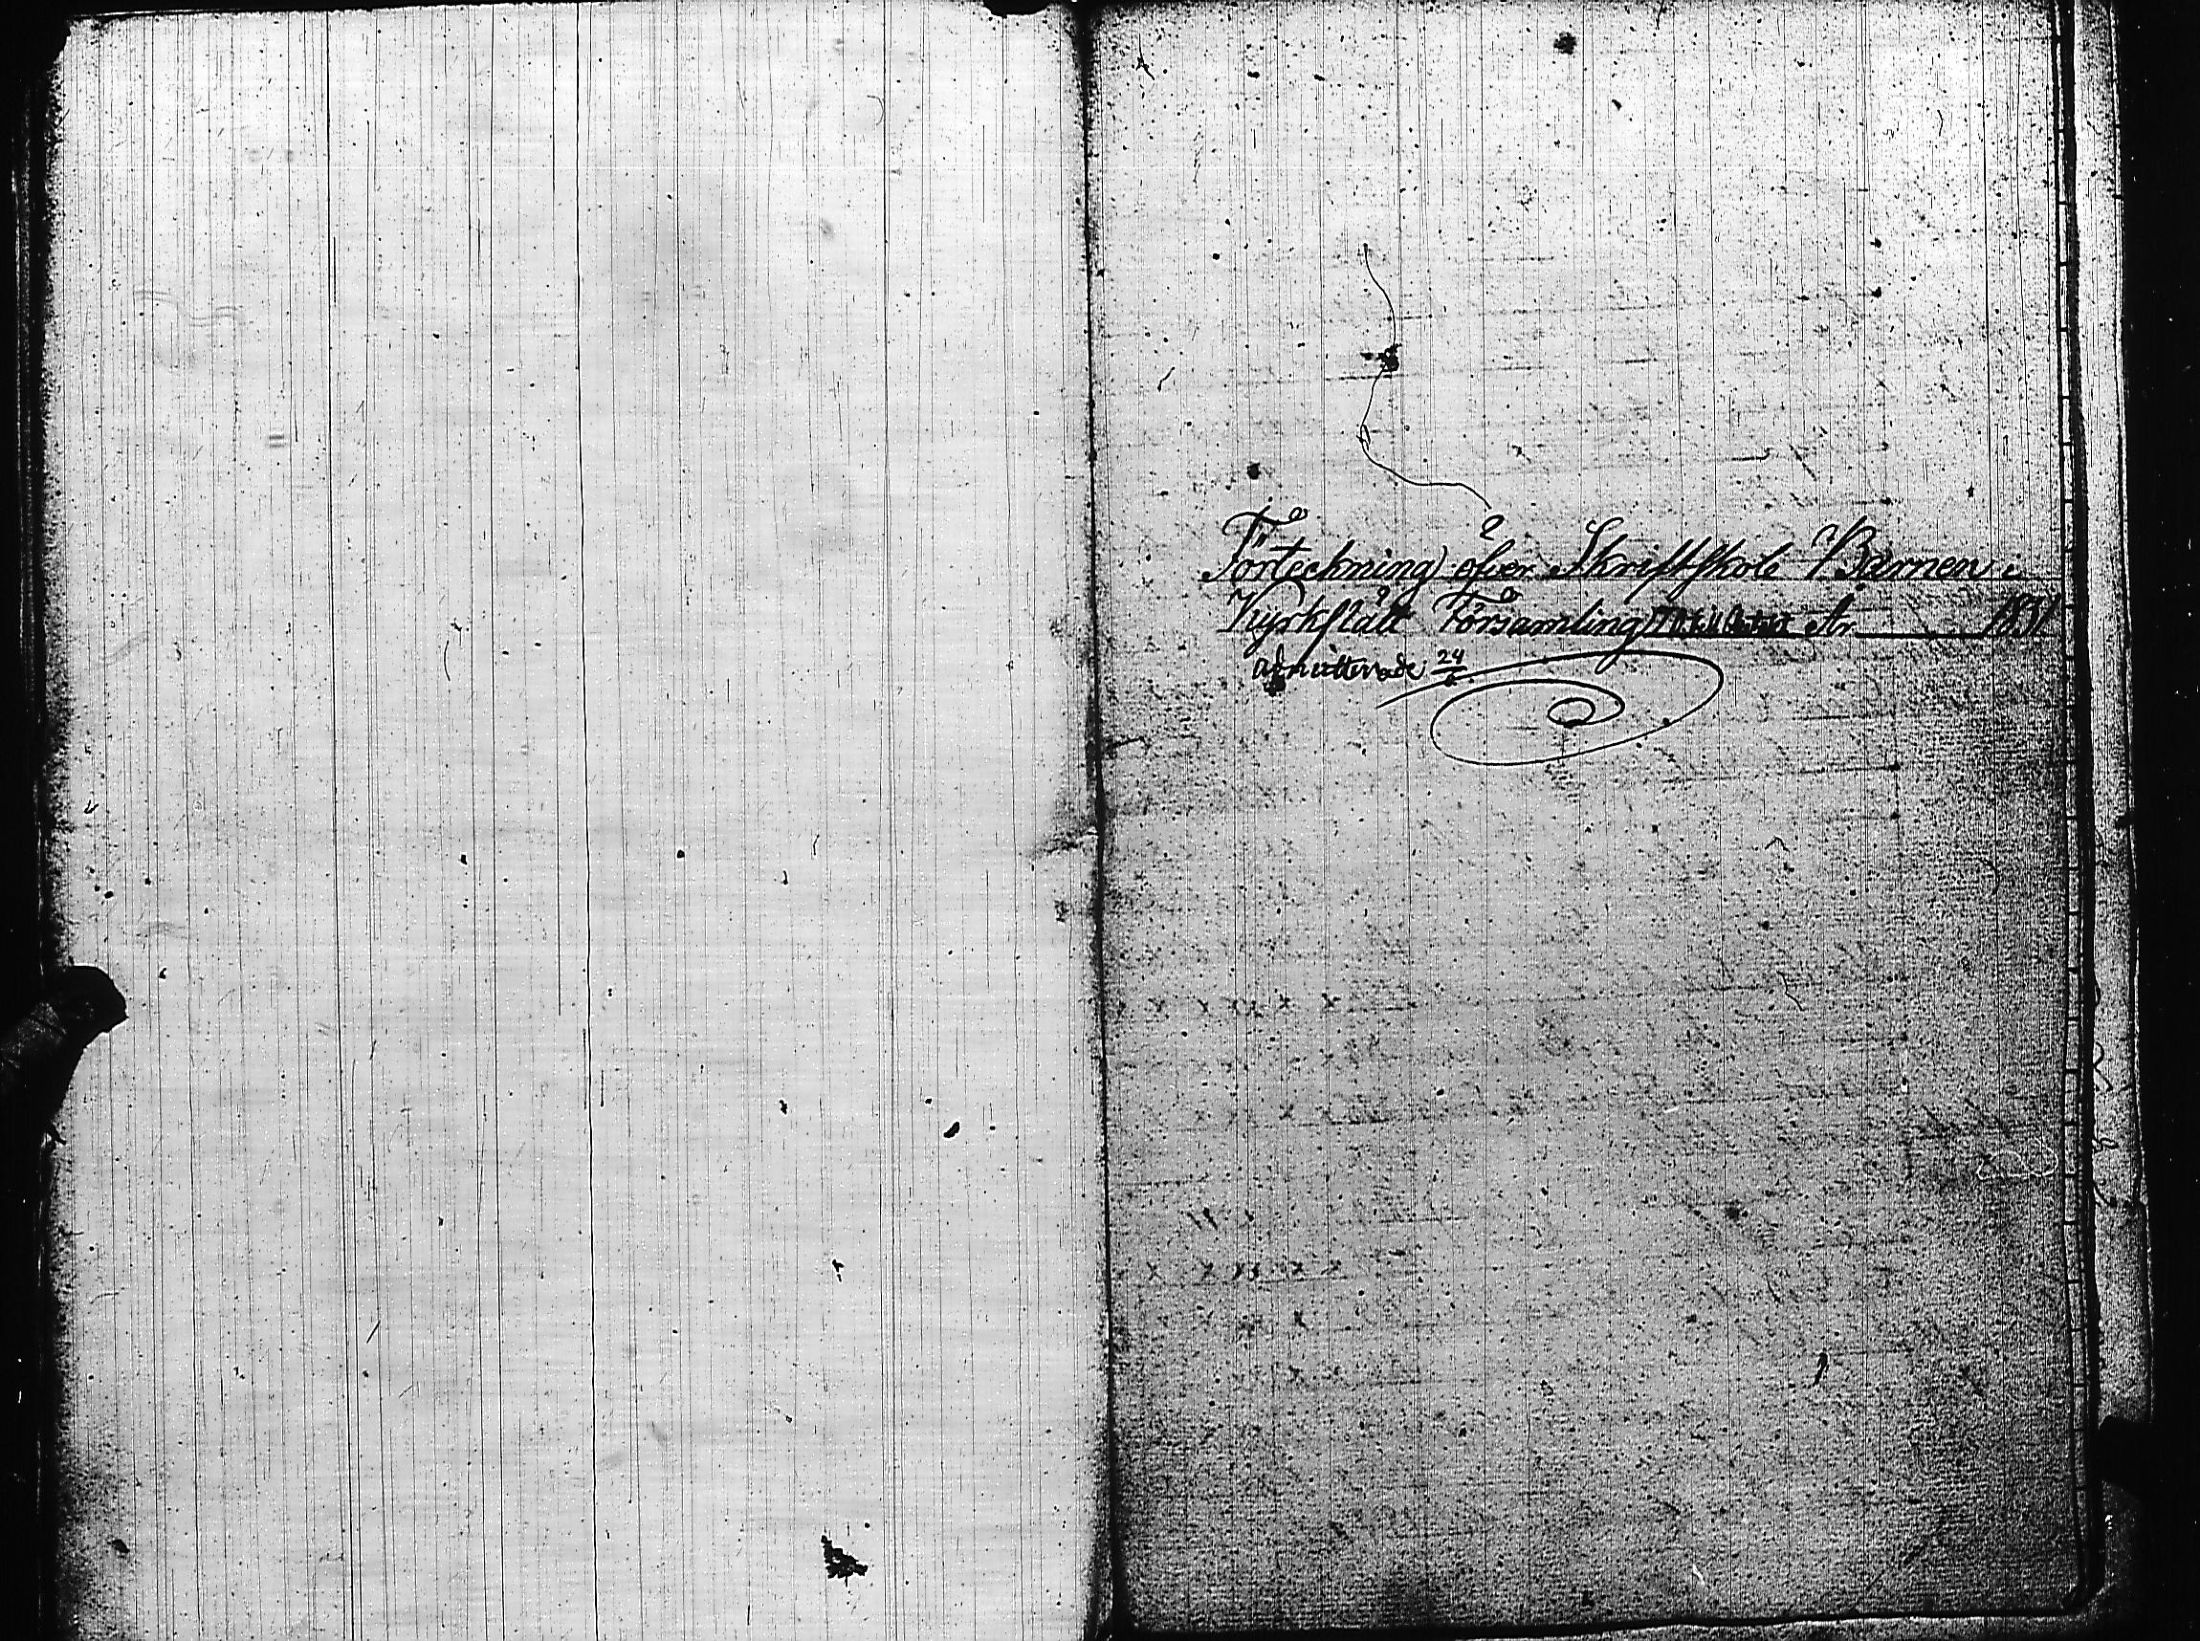 Förteckning öfver Skriftskole Barnen i
Kyrkslätt Församling År 1831
admitterade 24/6